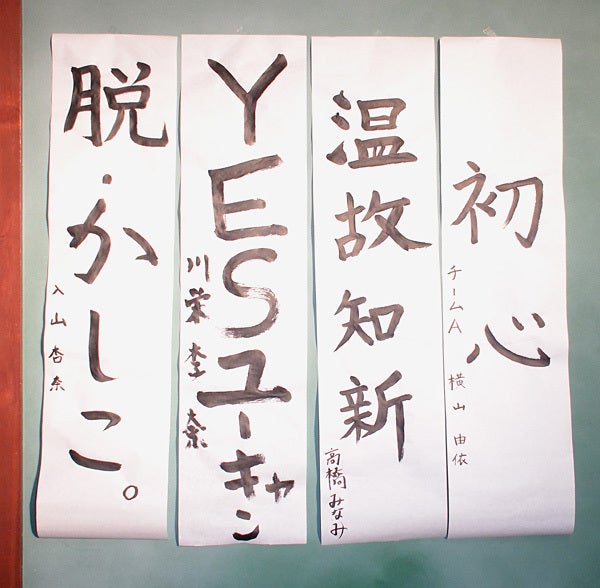 初心
チームA 横山 由依
温故知新
高橋みなみ
YESユーキャン
川栄李奈
脱・かしこ。
入山杏奈